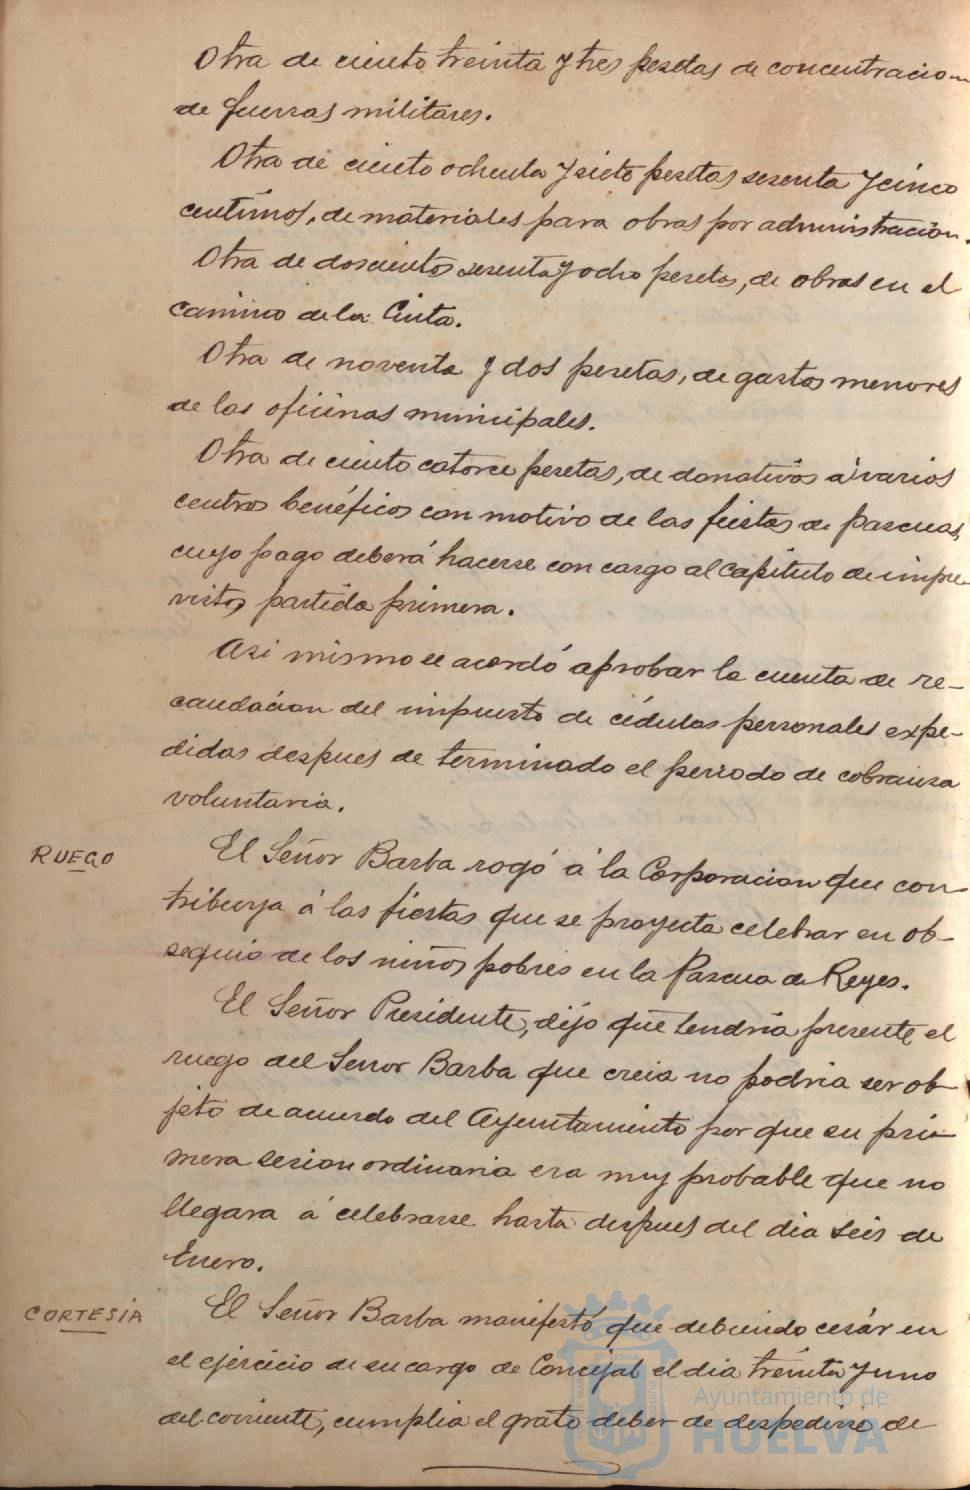 Otra de ciento treinta y tres pesetas de concentracion
de fuerzas militares.
Otra de ciento ochenta y siete pesetas sesenta y cinco
centimos, de materiales para obras por administración.
Otra de doscientos sesenta y ocho pesetas, de obras en el
camino de la Cinta.
Otra de noventa y dos pesetas, de gastos menores
de las oficinas municipales.
Otra de ciento catorce pesetas, de donativos a varios
centros benéficos con motivo de las fiestas de Pascuas,
cuyo pago deberá hacerse con cargo al Capitulo de impre-
vistos partida primera.
Asi mismo se acordó aprobar la cuenta de re-
caudacion del impuesto de cédulas personales expe-
didas despues de terminado el periodo de cobranza
voluntaria.
RUEGO
El Señor Barba rogó á la Corporacion que con-
tribuya á las fiestas que se proyecta celebrar en ob-
sequio de los niños pobres en la Pascua de Reyes.
El Señor Presidente, dijo que tendria presente el
ruego del Señor Barba que creia no podria ser ob-
jeto de acuerdo del Ayuntamiento por que su pri-
mera sesion ordinaria era muy probable que no
llegara á celebrarse hasta despues del dia seis de
Enero.
CORTESÍA
El Señor Barba manifestó que debiendo cesár en
el ejercicio de su cargo de Concejal el dia treinta y uno
del corriente, cumplia el grato deber de despedirse de
Ayuntamiento de
HUELVA